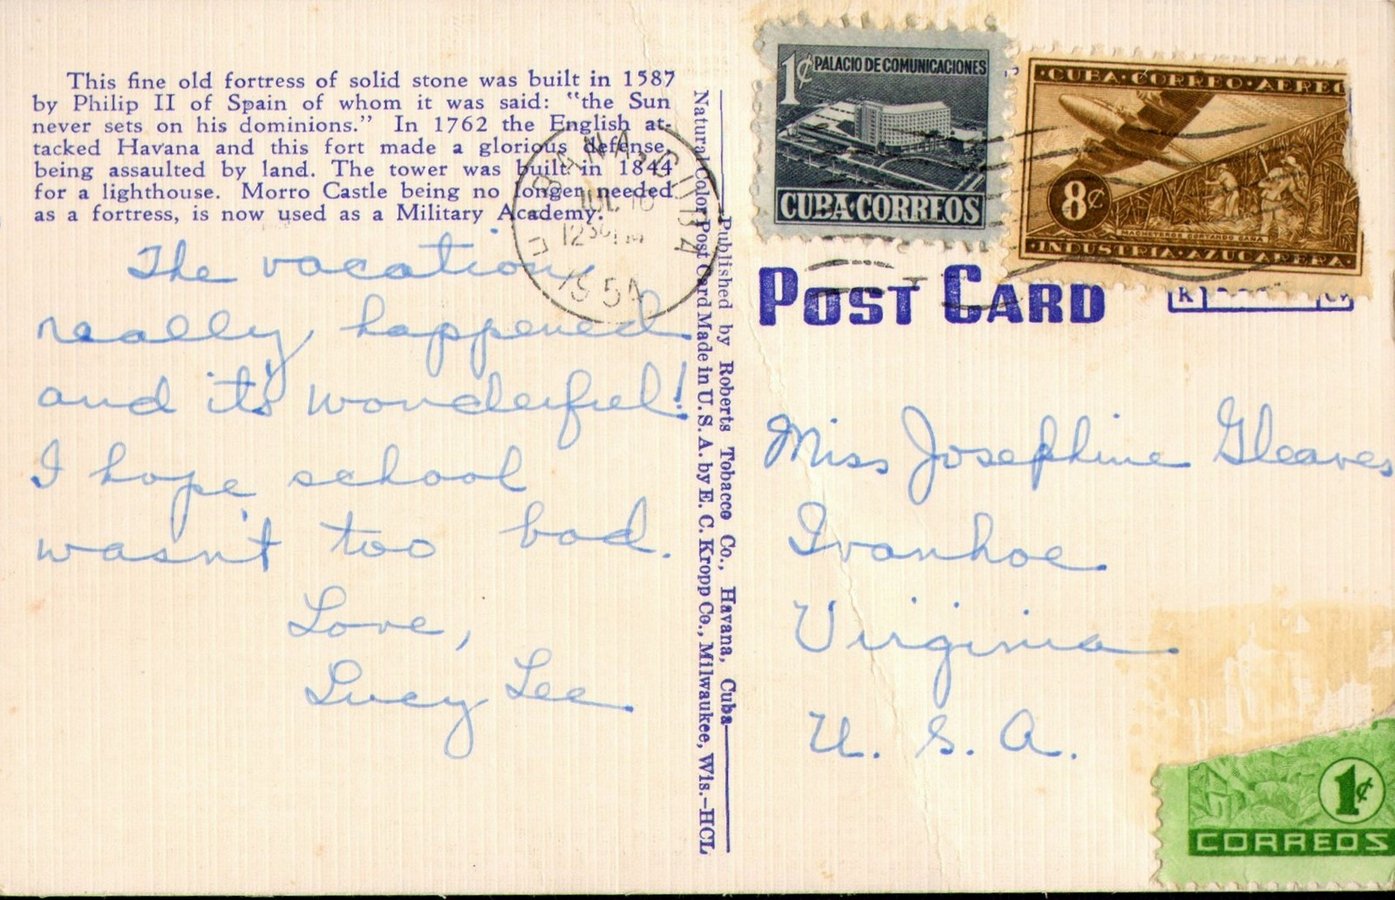 This fine old fortress of solid stone was built in 1587
by Philip II of Spain of whom it was said: "the Sun
never sets on his dominions." In 1762 the English at-
tacked Havana and this fort made a glorious defense,
being assaulted by land. The tower was built in 1844
for a lighthouse. Morro Castle being no longer needed
as a fortress, is now used as a Military Academy.
The vacation
really happened
and it's wonderful!
I hope school
wasn't too bad.
Love,
Lucy Lee
HAVANA, CUBA
JUL 16
12 30 PM
1954
Published by Roberts Tobacco Co., Havana, Cuba
Natural Color Post Card Made in U. S. A. by E. C. Kropp Co., Milwaukee, Wis.-HCL
1¢ PALACIO DE COMUNICACIONES
CUBA·CORREOS
·CUBA·CORREO·AEREO
8¢
·INDUSTRIA·AZUCARERA·
POST CARD
Miss Josephine Gleaves
Ivanhoe
Virginia
U. S. A.
1¢
CORREOS